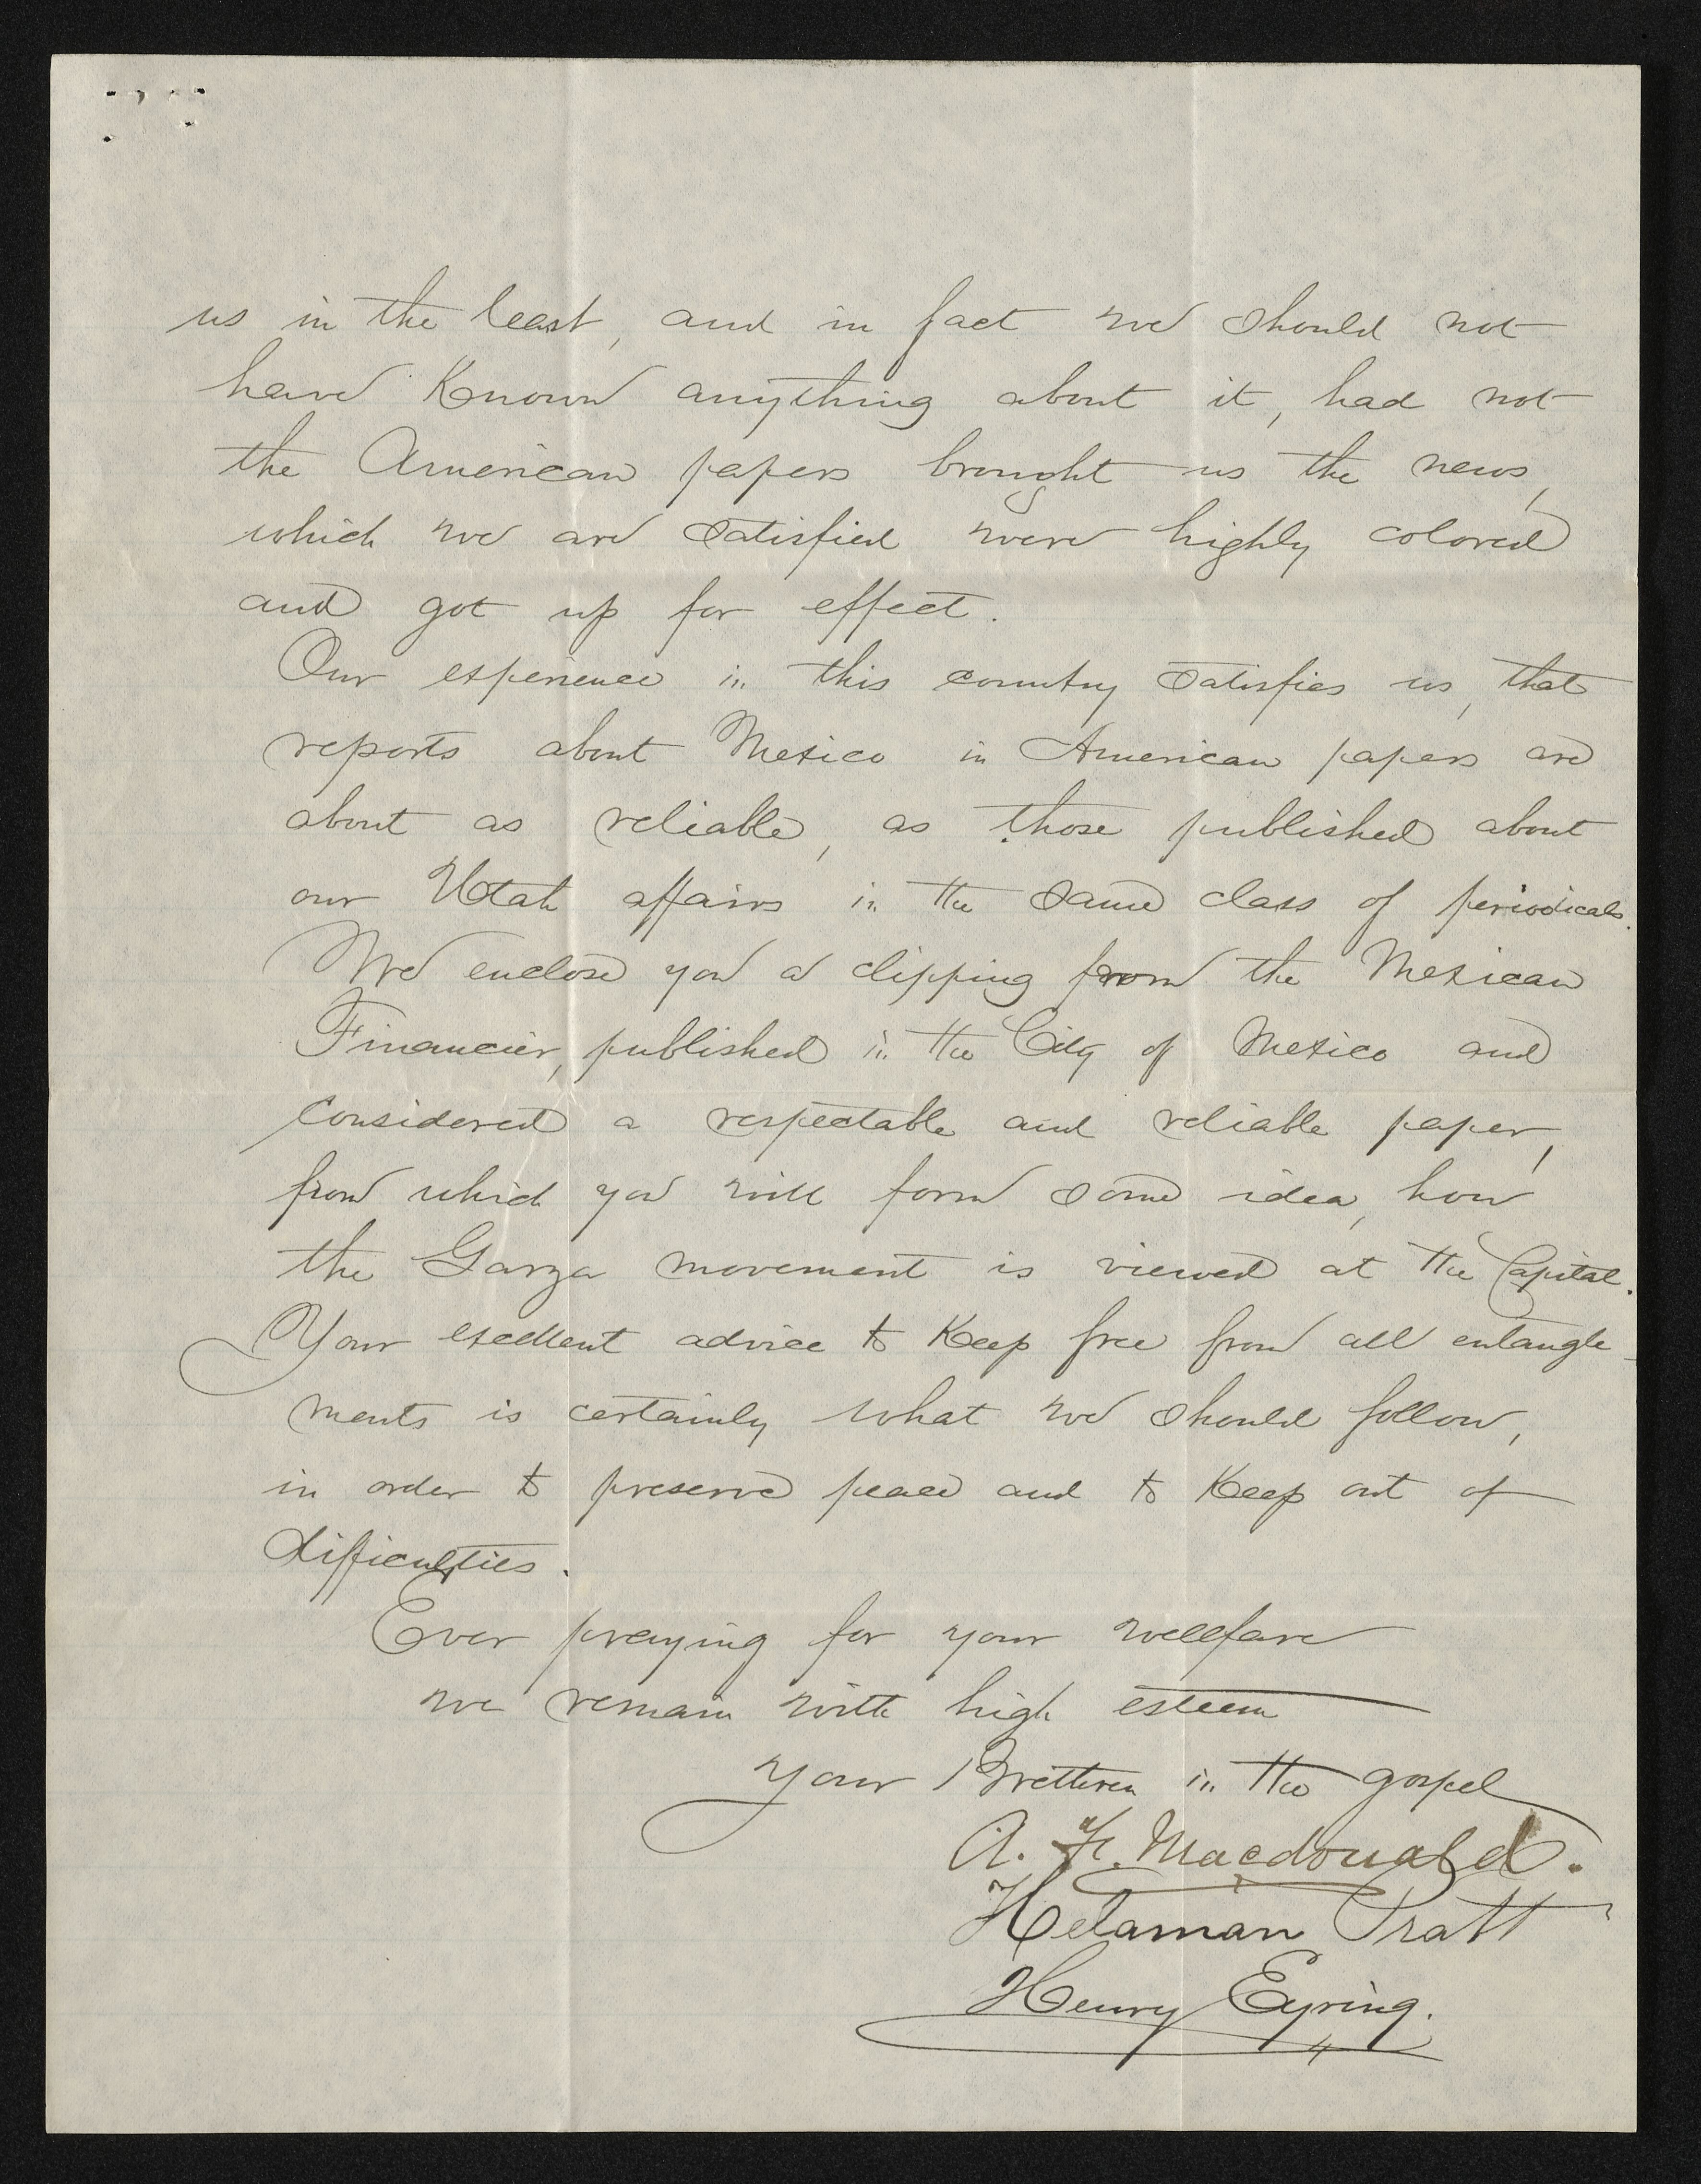 us in the least, and in fact we should not
have Known anything about it, had not
the American papers brought us the news,
which we are satisfied were highly colored
and got up for effect.
Our experience in this country satisfies us, that
reports about Mexico in American papers are
about as reliable, as those published about
our Utah affairs in the same class of periodicals.
We enclose you a clipping from the Mexican
Financier, published in the City of Mexico and
considered a respectable and reliable paper,
from which you will form some idea, how
the Garza movement is viewed at the Capital.
Your excellent advice to Keep free from all entangle-
ments is certainly what we should follow,
in order to preserve peace and to Keep out of
difficulties.
Ever praying for your wellfare
we remain with high esteem
your Brethren in the gospel
A. F. Macdonald.
Helaman Pratt
Henry Eyring.